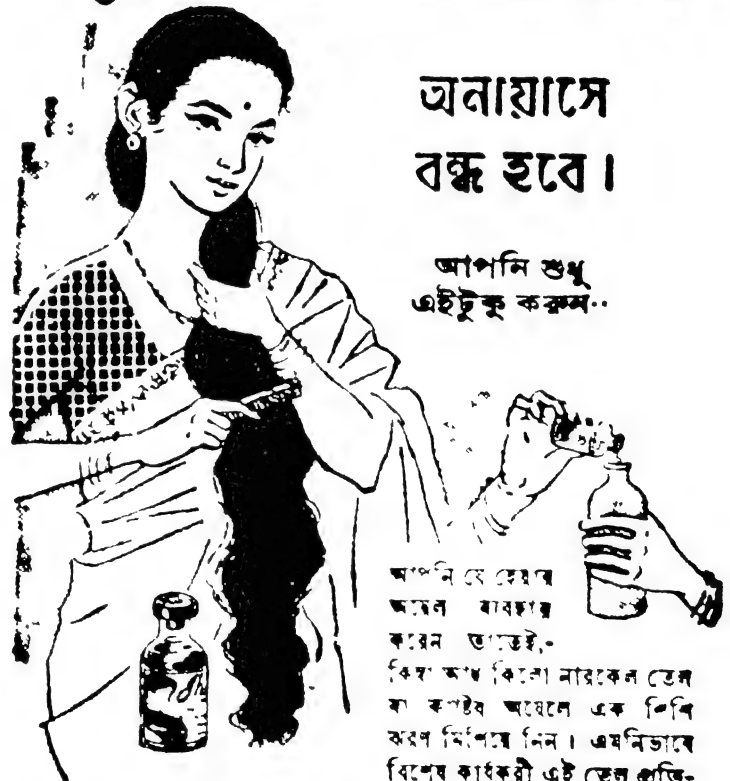 অনায়াসে
বন্ধ হবে।
আপনি শুধু
এইটুকু করুন··
আপনি যে হেয়ার
অয়েল ব্যবহার
করেন তাতেই,-
কিম্বা আধ কিলো নারকেল তেল
বা অয়েলে এক শিশি
ঝরণ মিশিয়ে নিন। এমনিভাবে
বিশেষ কার্যকরী এই তেল প্রতি-